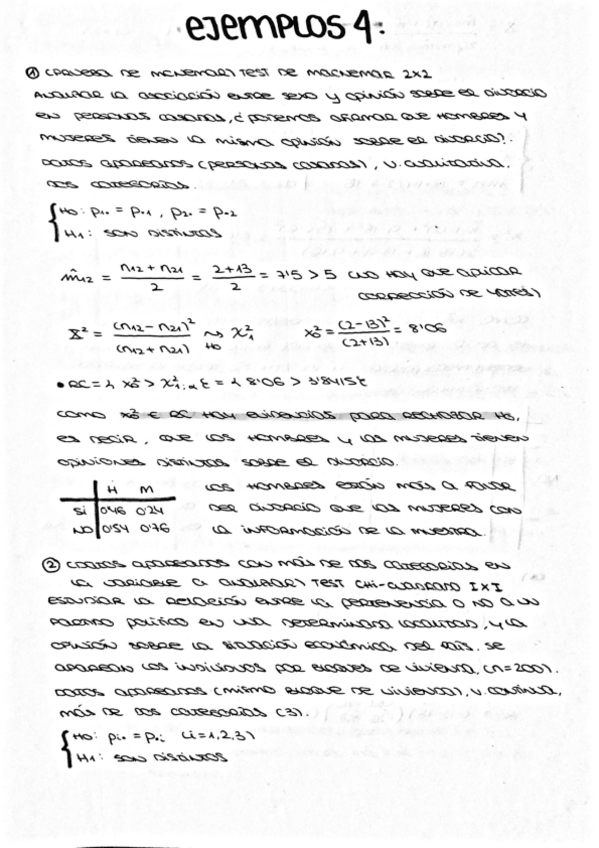 EJEMPLOS 4:
① (PRUEBA DE MCNEMAR) TEST DE MACNEMAR 2x2
ANALIZAR LA ASOCIACIÓN ENTRE SEXO Y OPINIÓN SOBRE EL DIVORCIO
EN PERSONAS CASADAS, ¿PODEMOS AFIRMAR QUE HOMBRES Y
MUJERES TIENEN LA MISMA OPINIÓN SOBRE EL DIVORCIO?.
DATOS APAREADOS (PERSONAS CASADAS), V. CUALITATIVA.
DOS CATEGORÍAS.
{H0: P1. = P.1 , P2. = P.2
H1: SON DISTINTAS
m̂12 = (n12 + n21)/2 = (2+13)/2 = 7'5 > 5 (NO HAY QUE APLICAR
CORRECCIÓN DE YATES)
X² = (n12 - n21)²/(n12 + n21) →H0 χ²1 x²0 = (2-13)²/(2+13) = 8'06
• RC = { x²0 > χ²1;α } = { 8'06 > 3'8415 }
COMO x²0 ∈ RC HAY EVIDENCIAS PARA RECHAZAR H0,
ES DECIR, QUE LOS HOMBRES Y LAS MUJERES TIENEN
OPINIONES DISTINTAS SOBRE EL DIVORCIO.
H M LOS HOMBRES ESTÁN MÁS A FAVOR
SÍ 0'46 0'24 DEL DIVORCIO QUE LAS MUJERES CON
NO 0'54 0'76 LA INFORMACIÓN DE LA MUESTRA.
② (DATOS APAREADOS CON MÁS DE DOS CATEGORÍAS EN
LA VARIABLE A ANALIZAR) TEST CHI-CUADRADO I x I
ESTUDIAR LA RELACIÓN ENTRE LA PERTENENCIA O NO A UN
PARTIDO POLÍTICO EN UNA DETERMINADA LOCALIDAD, Y LA
OPINIÓN SOBRE LA SITUACIÓN ECONÓMICA DEL PAÍS. SE
APAREAN LOS INDIVIDUOS POR BLOQUES DE VIVIENDA, (n=200).
DATOS APAREADOS (MISMO BLOQUE DE VIVIENDA), V.
MÁS DE DOS CATEGORÍAS (3).
{H0: Pi. = P.i (i=1,2,3)
H1: SON DISTINTOS